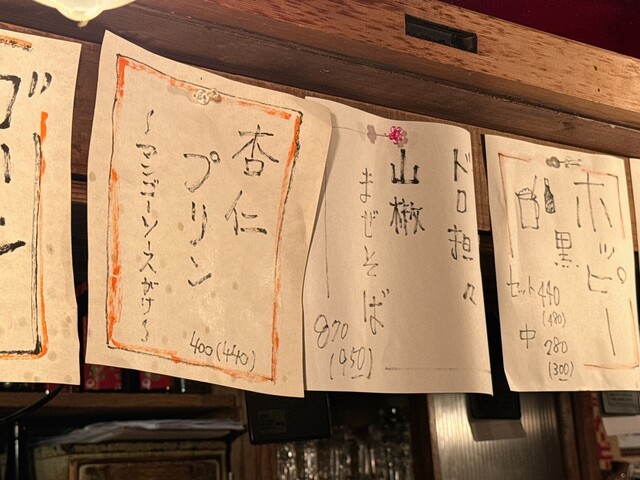 ホッピー
黒
セット 440
(480)
中 280
(300)
ドロ担々
山椒
まぜそば
870
(950)
杏仁
プリン
～マンゴーソースがけ～
400(440)